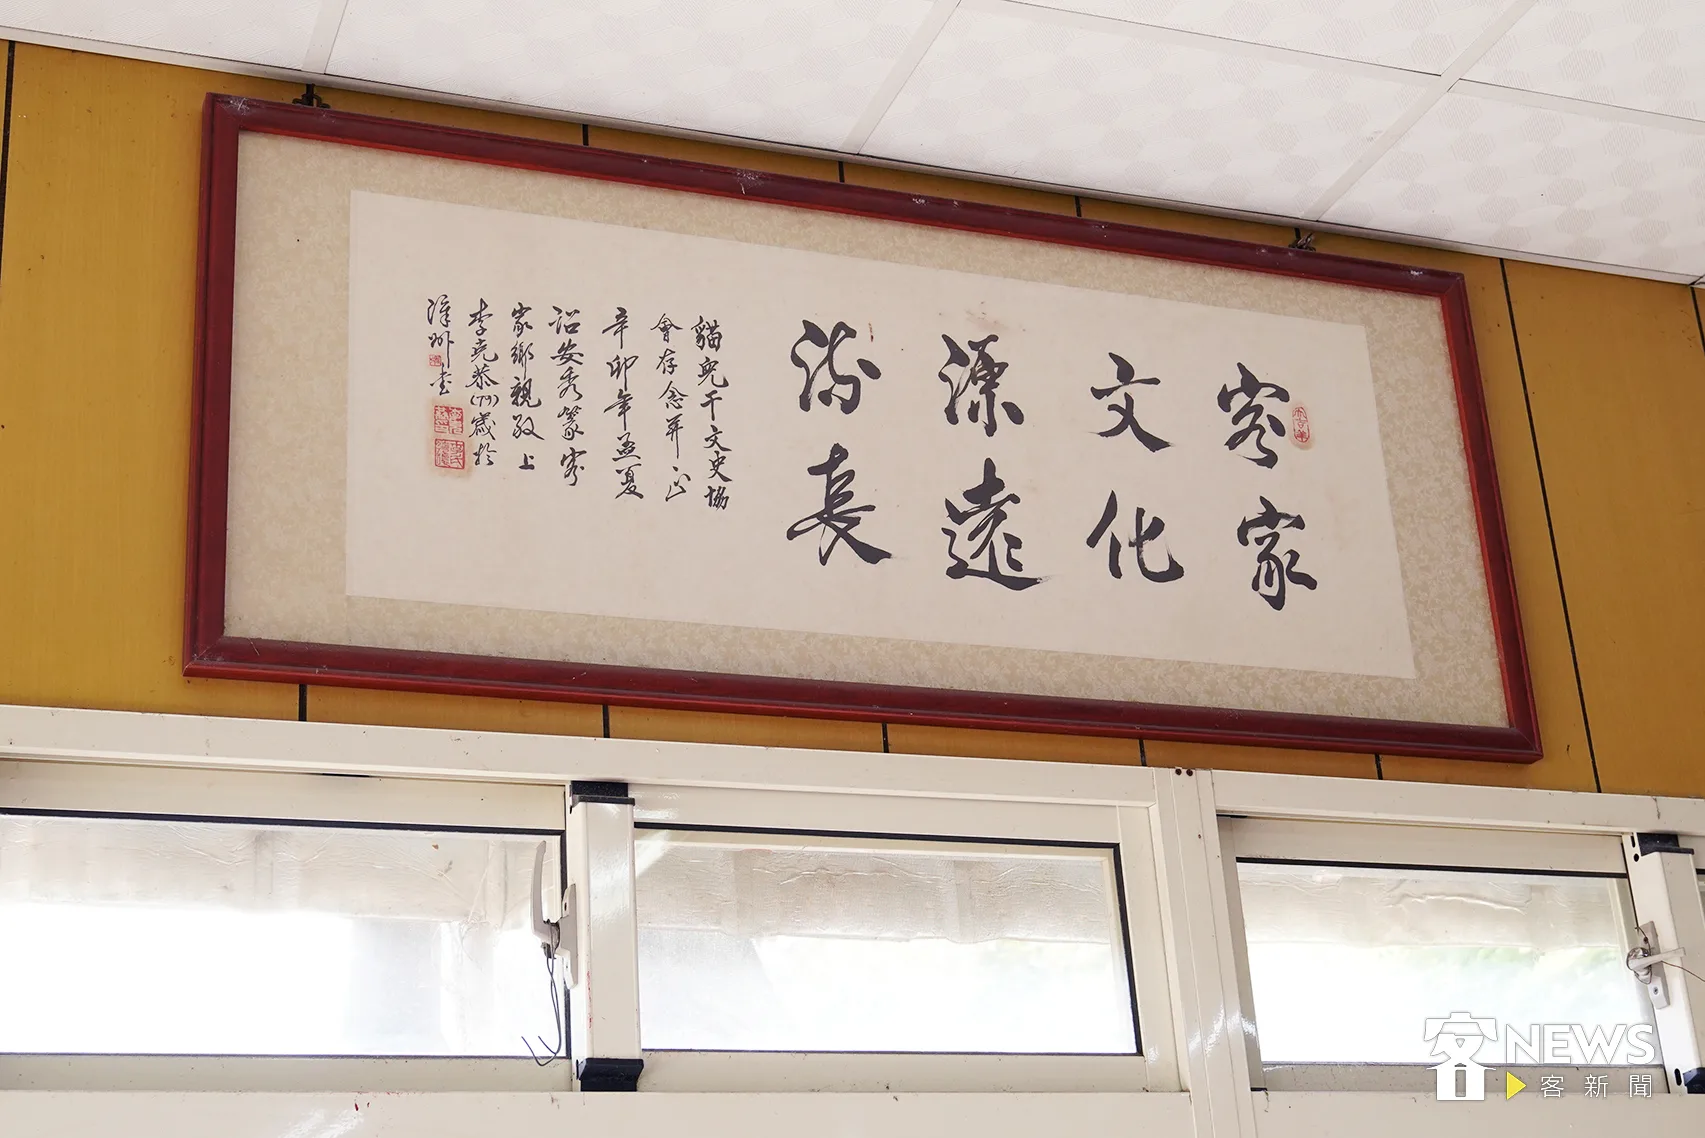 客家
文化
源遠
流長
貓兒干文史協
會存念並正
辛卯年孟夏
詔安秀篆客
家鄉親敬上
李堯恭(79)歲於
漳州
NEWS
客新聞